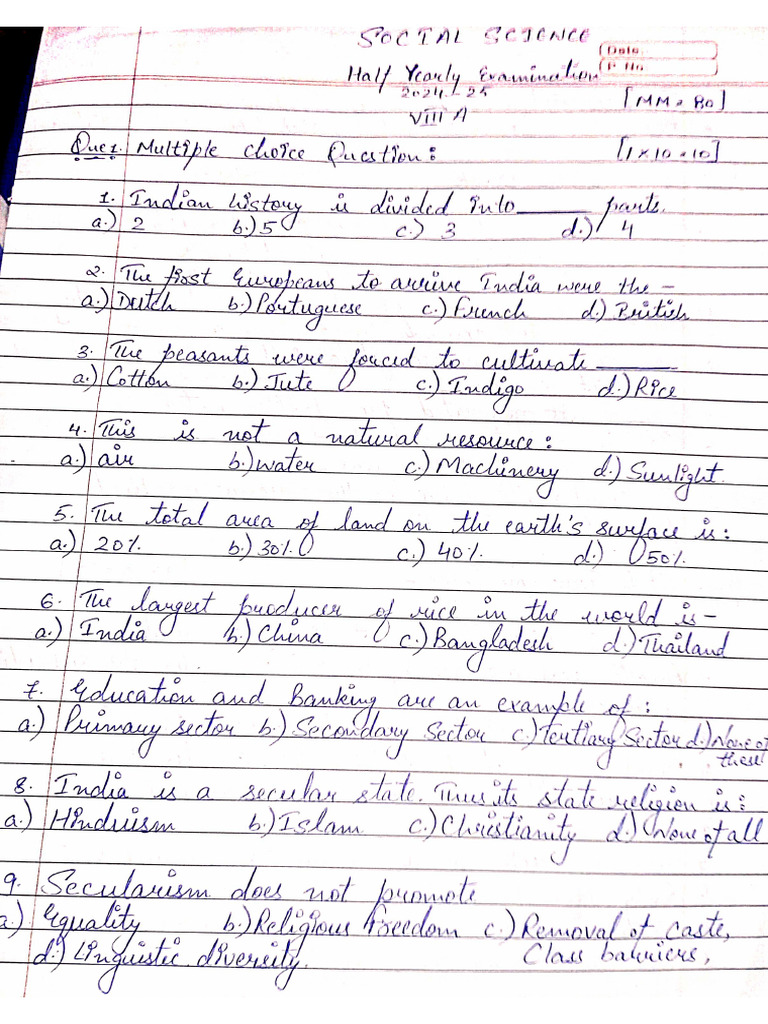 SOCIAL SCIENCE
Date.
P No.
Half Yearly Examination
2024-25
[MM=80]
VIII A
Que1. Multiple choice Question: [1×10=10]
1. Indian history is divided into______ parts.
a.) 2 b.) 5 c.) 3 d.) 4
2. The first Europeans to arrive India were the -
a.) Dutch b.) Portuguese c.) French d.) British
3. The peasants were forced to cultivate______
a.) Cotton b.) Jute c.) Indigo d.) Rice
4. This is not a natural resource:
a.) air b.) water c.) Machinery d.) Sunlight.
5. The total area of land on the earth's surface is:
a.) 20% b.) 30% c.) 40% d.) 50%
6. The largest producer of rice in the world is-
a.) India b.) China c.) Bangladesh d.) Thailand
7. Education and Banking are an example of:
a.) Primary sector b.) Secondary Sector c.) Tertiary Sector d.) None of
these
8. India is a secular state. Thus its state religion is:
a.) Hinduism b.) Islam c.) Christianity d.) None of all
9. Secularism does not promote
a.) Equality b.) Religious freedom c.) Removal of caste,
Class barriers,
d.) Linguistic diversity.